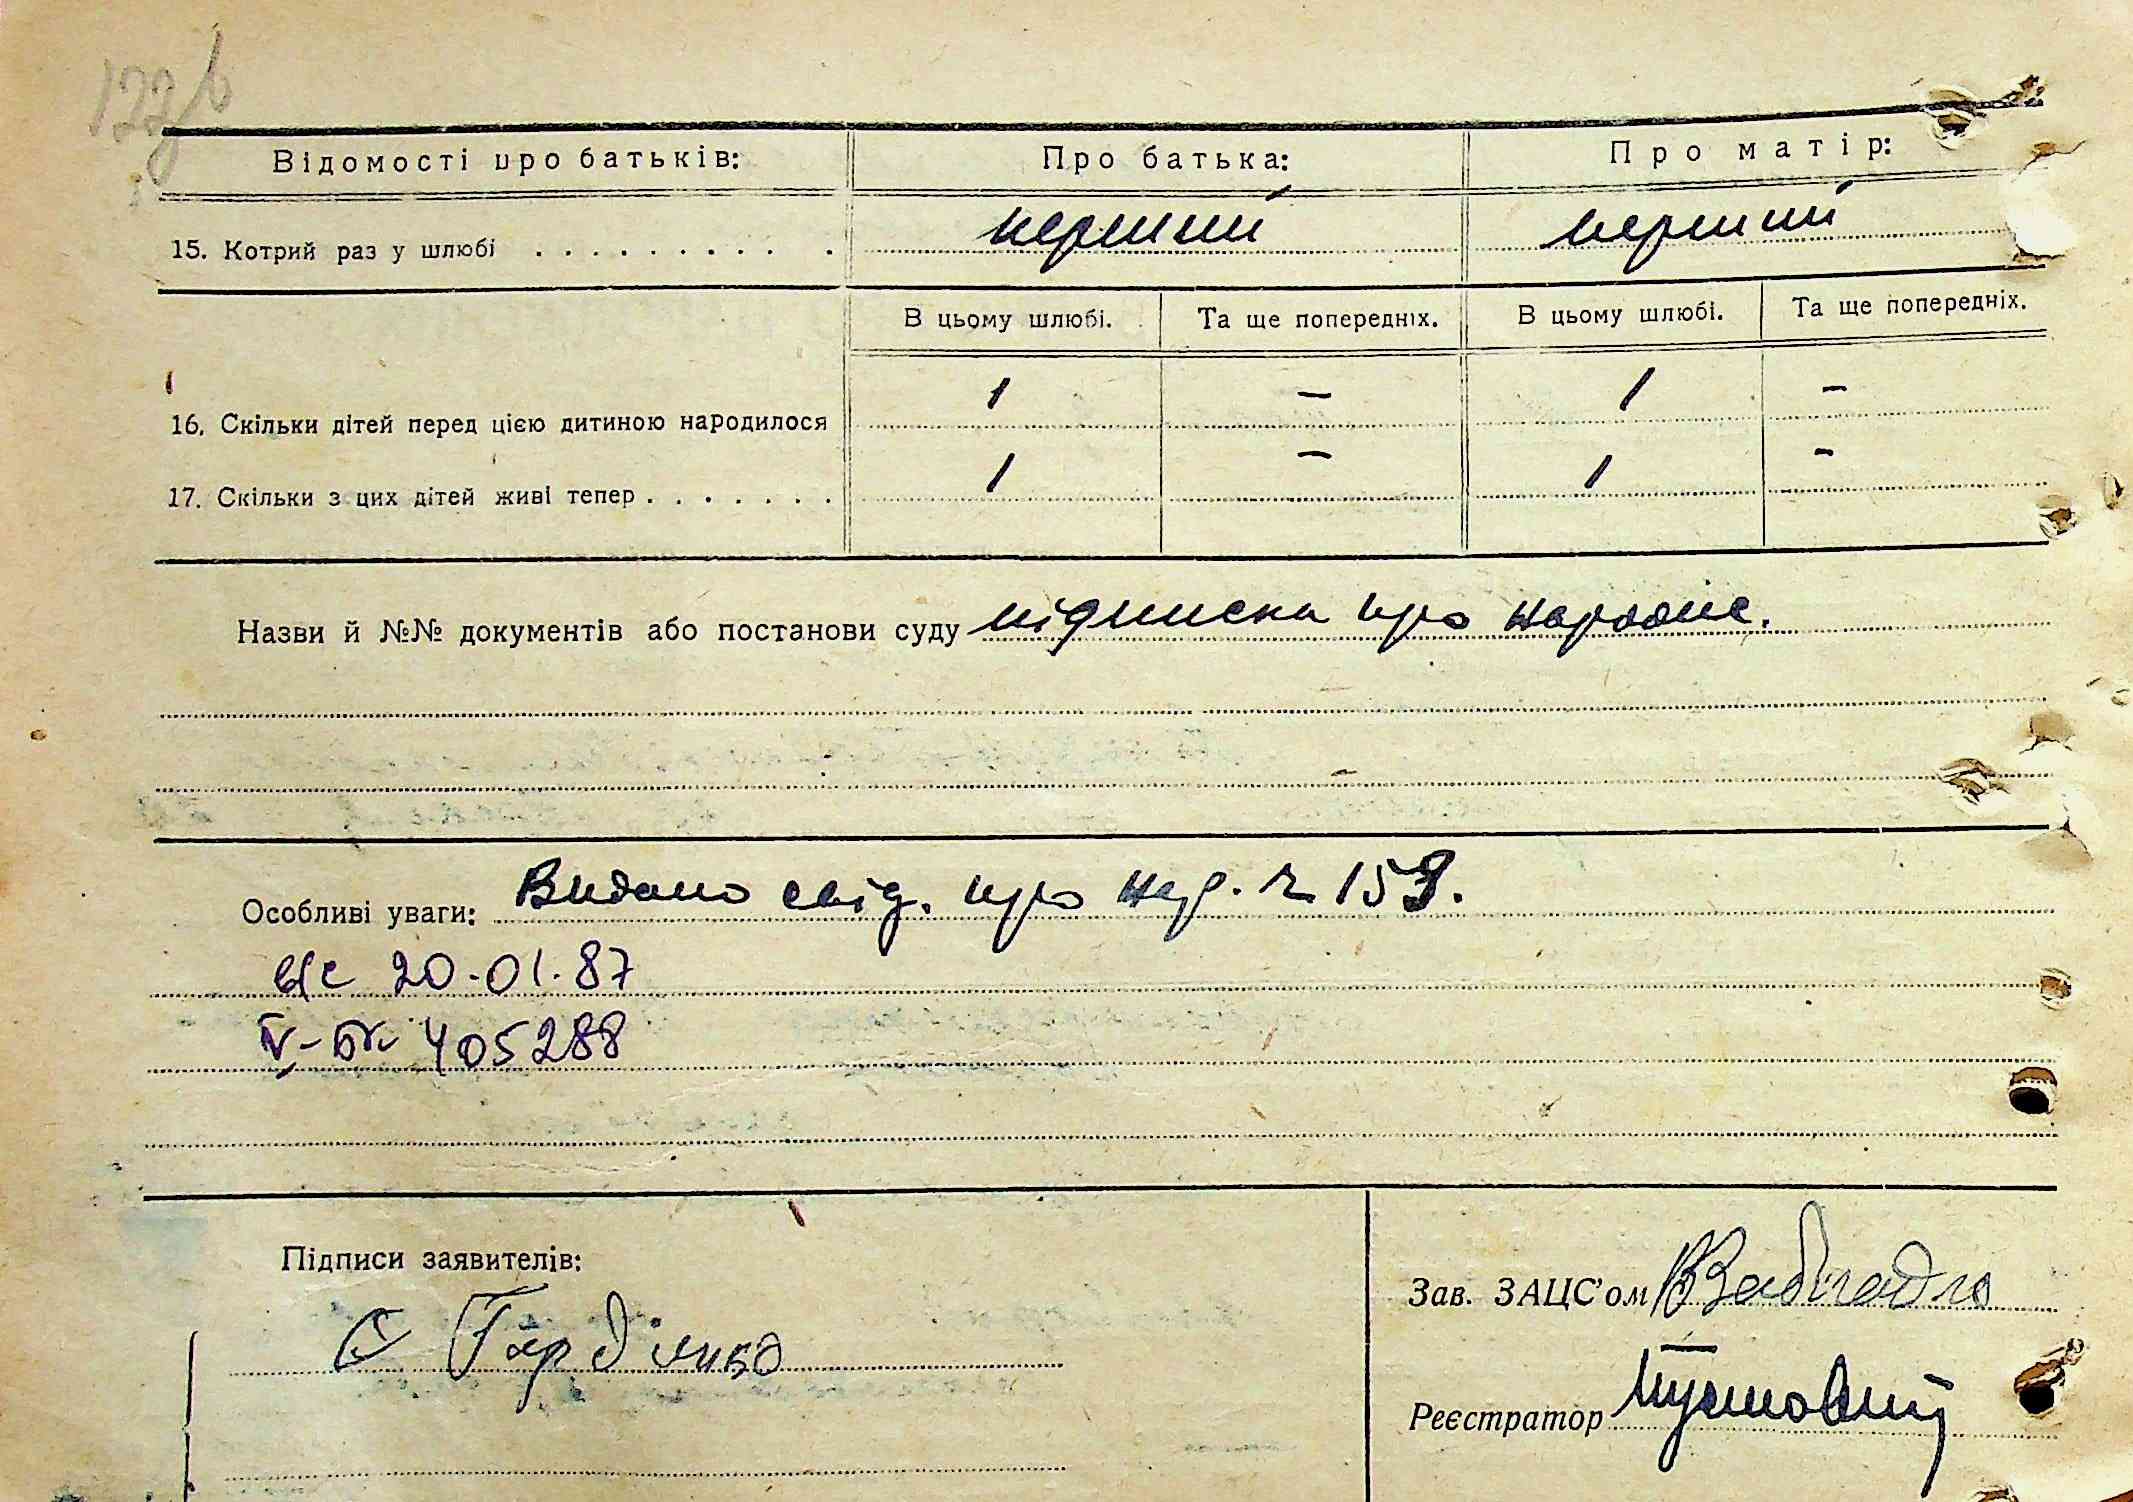 Відомості про батьків: Про батька: Про матір:
15. Котрий раз у шлюбі . . . . . . . . . . перший перший
В цьому шлюбі. Та ще попередніх. В цьому шлюбі. Та ще попередніх.
1 – 1 –
16. Скільки дітей перед цією дитиною народилося
1 – 1 –
17. Скільки з цих дітей живі тепер . . . . . . .
Назви й №№ документів або постанови суду підписка про
Особливі уваги: Видано свід. про нар. ч. 153.
в/с 20-01-87
405288
Підписи заявителів:
Зав. ЗАЦС'ом
Реєстратор